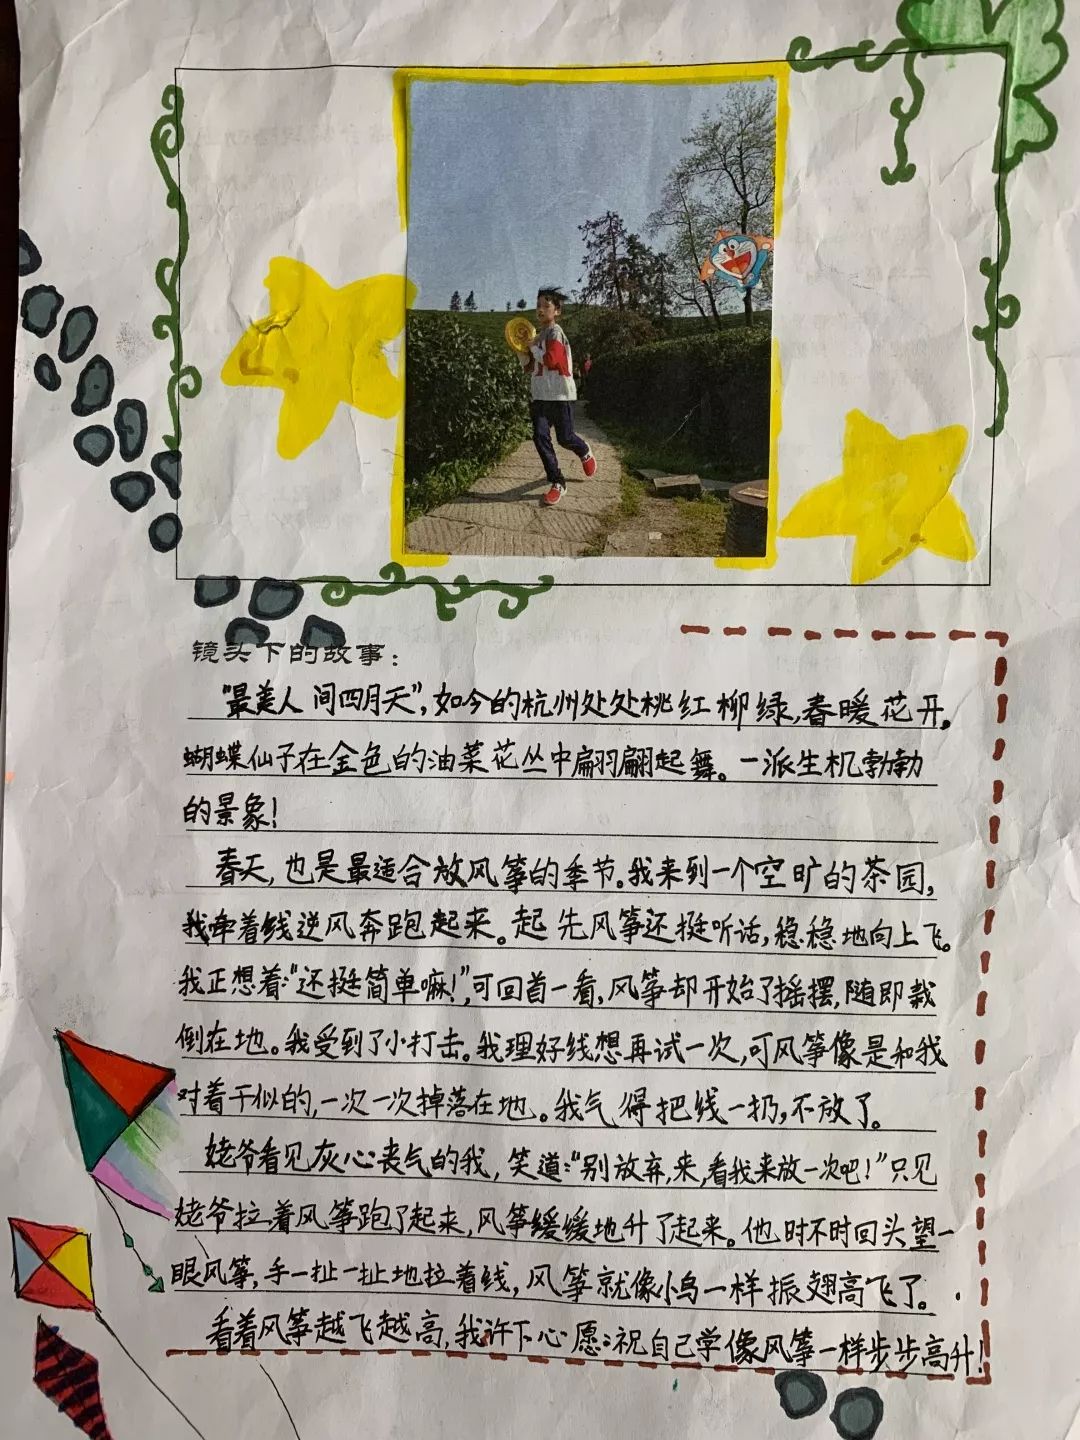 镜头下的故事：
“最美人间四月天”，如今的杭州处处桃红柳绿，春暖花开。
蝴蝶仙子在金色的油菜花丛中翩翩起舞。一派生机勃勃
的景象！
春天，也是最适合放风筝的季节。我来到一个空旷的茶园，
我牵着线逆风奔跑起来。起先风筝还挺听话，稳稳地向上飞。
我正想着：“还挺简单嘛！”，可回首一看，风筝却开始了摇摆，随即栽
倒在地。我受到了小打击。我理好线想再试一次，可风筝像是和我
对着干似的，一次一次掉落在地。我气得把线一扔，不放了。
姥爷看见灰心丧气的我，笑道：“别放弃，来，看我来放一次吧！”只见
姥爷拉着风筝跑了起来，风筝缓缓地升了起来。他时不时回头望一
眼风筝，手一扯一扯地拉着线，风筝就像小鸟一样振翅高飞了。
看着风筝越飞越高，我许下心愿：祝自己学像风筝一样步步高升！